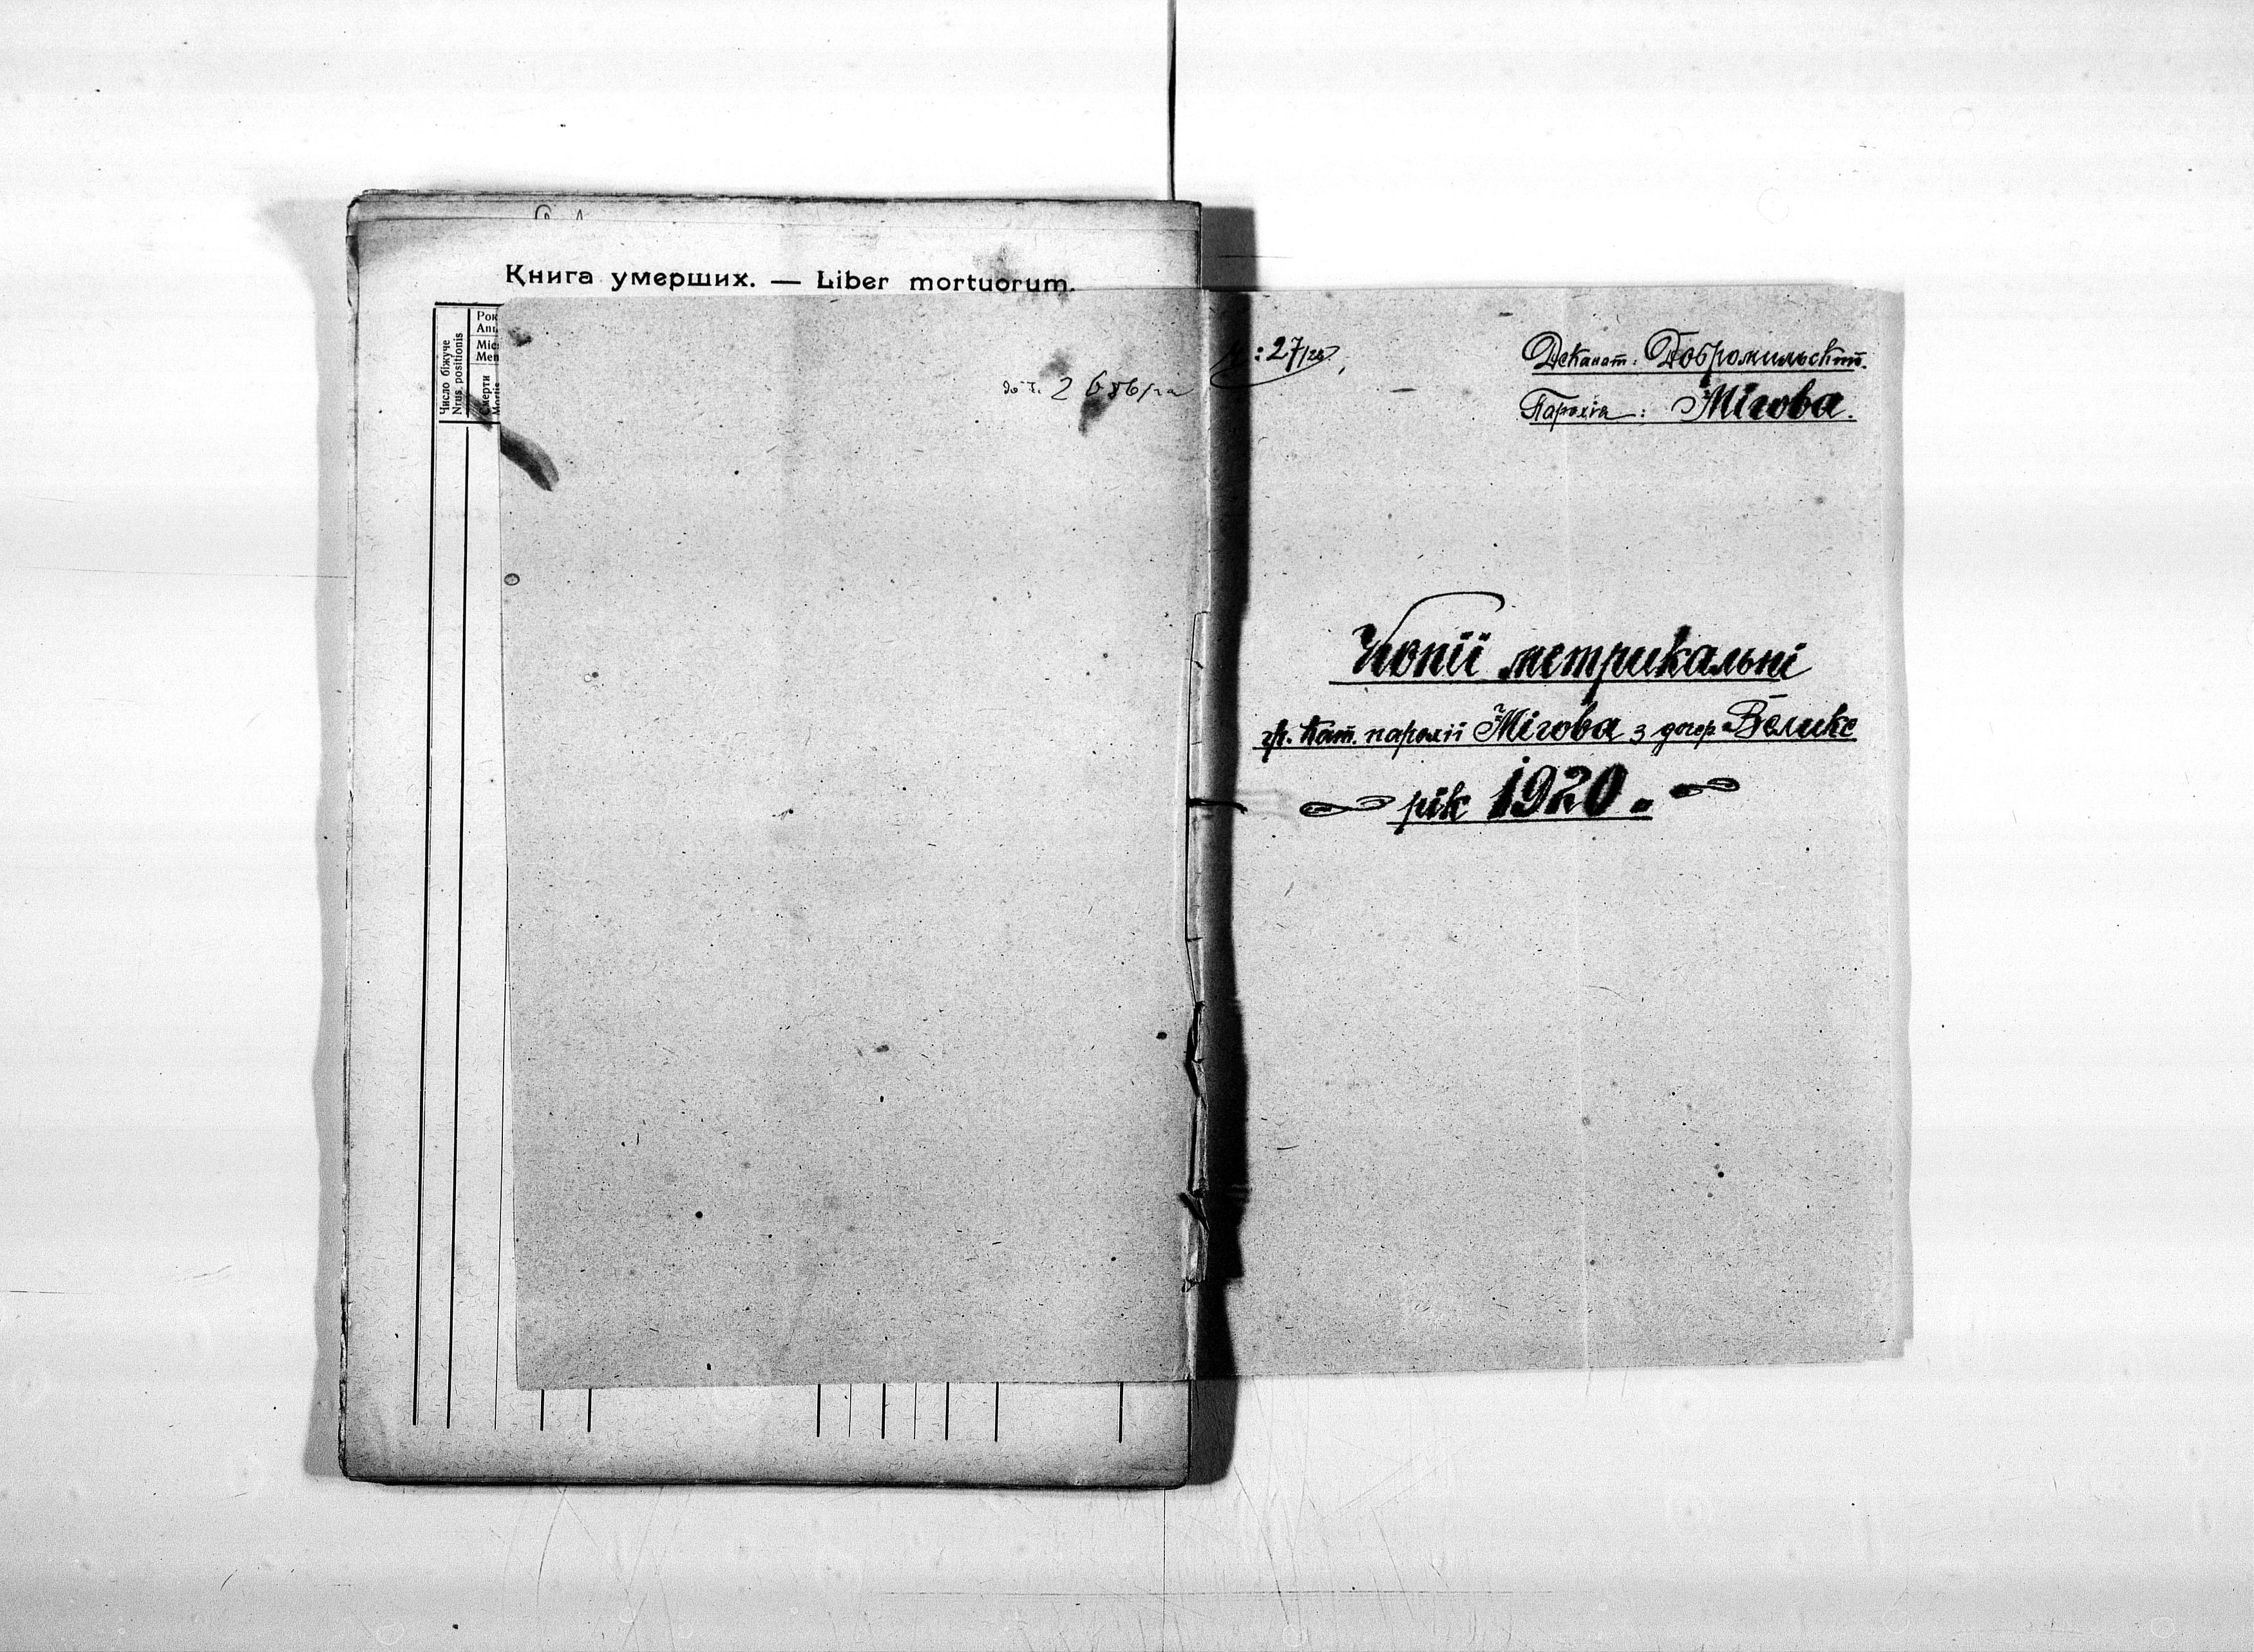 Книга умерших. — Liber mortuorum.
Число біжуче
Nrus. positionis
Рок
Міс
Смерти
Mortis
до ч.
: 27/20
Деканат: Добромильский.
Парохія: Мігова.
Копії метрикальні
гр. кат. парохії Мігова з дочер. Велике
рік 1920.